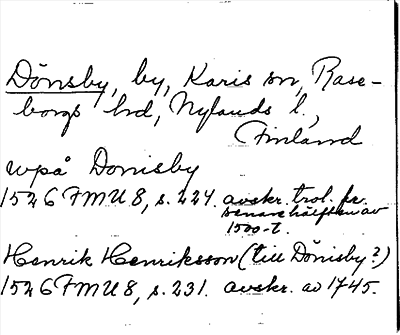 Dönsby, by, Karis sn, Rase-
borgs hd, Nylands l.,
Finland
wpå Donisby
1526 FMU 8, s. 224. avskr. trol. fr.
senare hälften av
1500-t.
Henrik Henriksson (till Dönisby?)
1526 FMU 8, s. 231. avskr. av 1745.